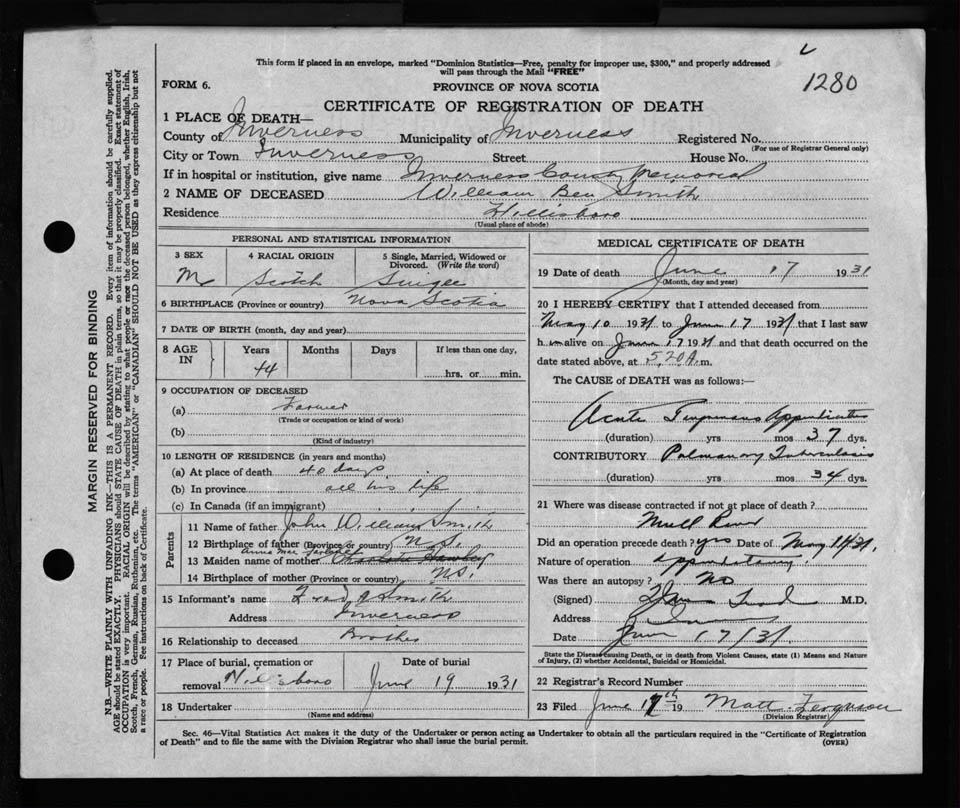 This form if placed in an envelope, marked "Dominion Statistics—Free, penalty for improper use, $300," and properly addressed
will pass through the Mail "FREE"
1280
FORM 6.
PROVINCE OF NOVA SCOTIA
CERTIFICATE OF REGISTRATION OF DEATH
1 PLACE OF DEATH—
County of Inverness Municipality of Inverness Registered No.
(For use of Registrar General only)
City or Town Inverness Street House No.
If in hospital or institution, give name Inverness County Memorial
2 NAME OF DECEASED William Ben Smith
Residence Hillsboro
(Usual place of abode)
PERSONAL AND STATISTICAL INFORMATION
3 SEX 4 RACIAL ORIGIN 5 Single, Married, Widowed or
Divorced. (Write the word)
M Scotch Single
6 BIRTHPLACE (Province or country) Nova Scotia
7 DATE OF BIRTH (month, day and year)
8 AGE IN Years Months Days If less than one day,
44 hrs. or min.
9 OCCUPATION OF DECEASED
(a) Farmer
(Trade or occupation or kind of work)
(b)
(Kind of industry)
10 LENGTH OF RESIDENCE (in years and months)
(a) At place of death 40 days
(b) In province all his life
(c) In Canada (if an immigrant)
Parents
11 Name of father John William Smith
12 Birthplace of father (Province or country) N.S.
Anna Mae
13 Maiden name of mother
14 Birthplace of mother (Province or country) NS.
15 Informant's name Smith
Address Inverness
16 Relationship to deceased Brother
17 Place of burial, cremation or Date of burial
removal Hillsboro June 19 1931
18 Undertaker
(Name and address)
MEDICAL CERTIFICATE OF DEATH
19 Date of death June 17 1931
(Month, day and year)
20 I HEREBY CERTIFY that I attended deceased from
May 10 1931 to June 17 1931 that I last saw
him alive on June 17 1931 and that death occurred on the
date stated above, at 5.20 A.m.
The CAUSE OF DEATH was as follows:—
Acute Appendicitis
(duration) yrs mos 37 dys.
CONTRIBUTORY Pulmonary Tuberculosis
(duration) yrs mos 34 dys.
21 Where was disease contracted if not at place of death?
Mull River
Did an operation precede death? yes Date of May 11/31.
Nature of operation
Was there an autopsy? No
(Signed) M.D.
Address
Date June 17/31
State the Disease causing Death, or in death from Violent Causes, state (1) Means and Nature
of Injury, (2) whether Accidental, Suicidal or Homicidal.
22 Registrar's Record Number
23 Filed June 17th 19 Matt. Ferguson
(Division Registrar)
Sec. 46—Vital Statistics Act makes it the duty of the Undertaker or person acting as Undertaker to obtain all the particulars required in the "Certificate of Registration
of Death" and to file the same with the Division Registrar who shall issue the burial permit. (OVER)
MARGIN RESERVED FOR BINDING
N.B.—WRITE PLAINLY WITH UNFADING INK—THIS IS A PERMANENT RECORD. Every item of information should be carefully supplied.
AGE should be stated EXACTLY. PHYSICIANS should STATE CAUSE OF DEATH in plain terms, so that it may be properly classified. Exact statement of
OCCUPATION is very important. RACIAL ORIGIN will be described by stating to what people or race the deceased person belonged, whether English, Irish,
Scotch, French, German, Russian, Ruthenian, etc. The terms "AMERICAN" or "CANADIAN" SHOULD NOT BE USED as they express citizenship but not
a race or people. Fee instructions on back of Certificate.